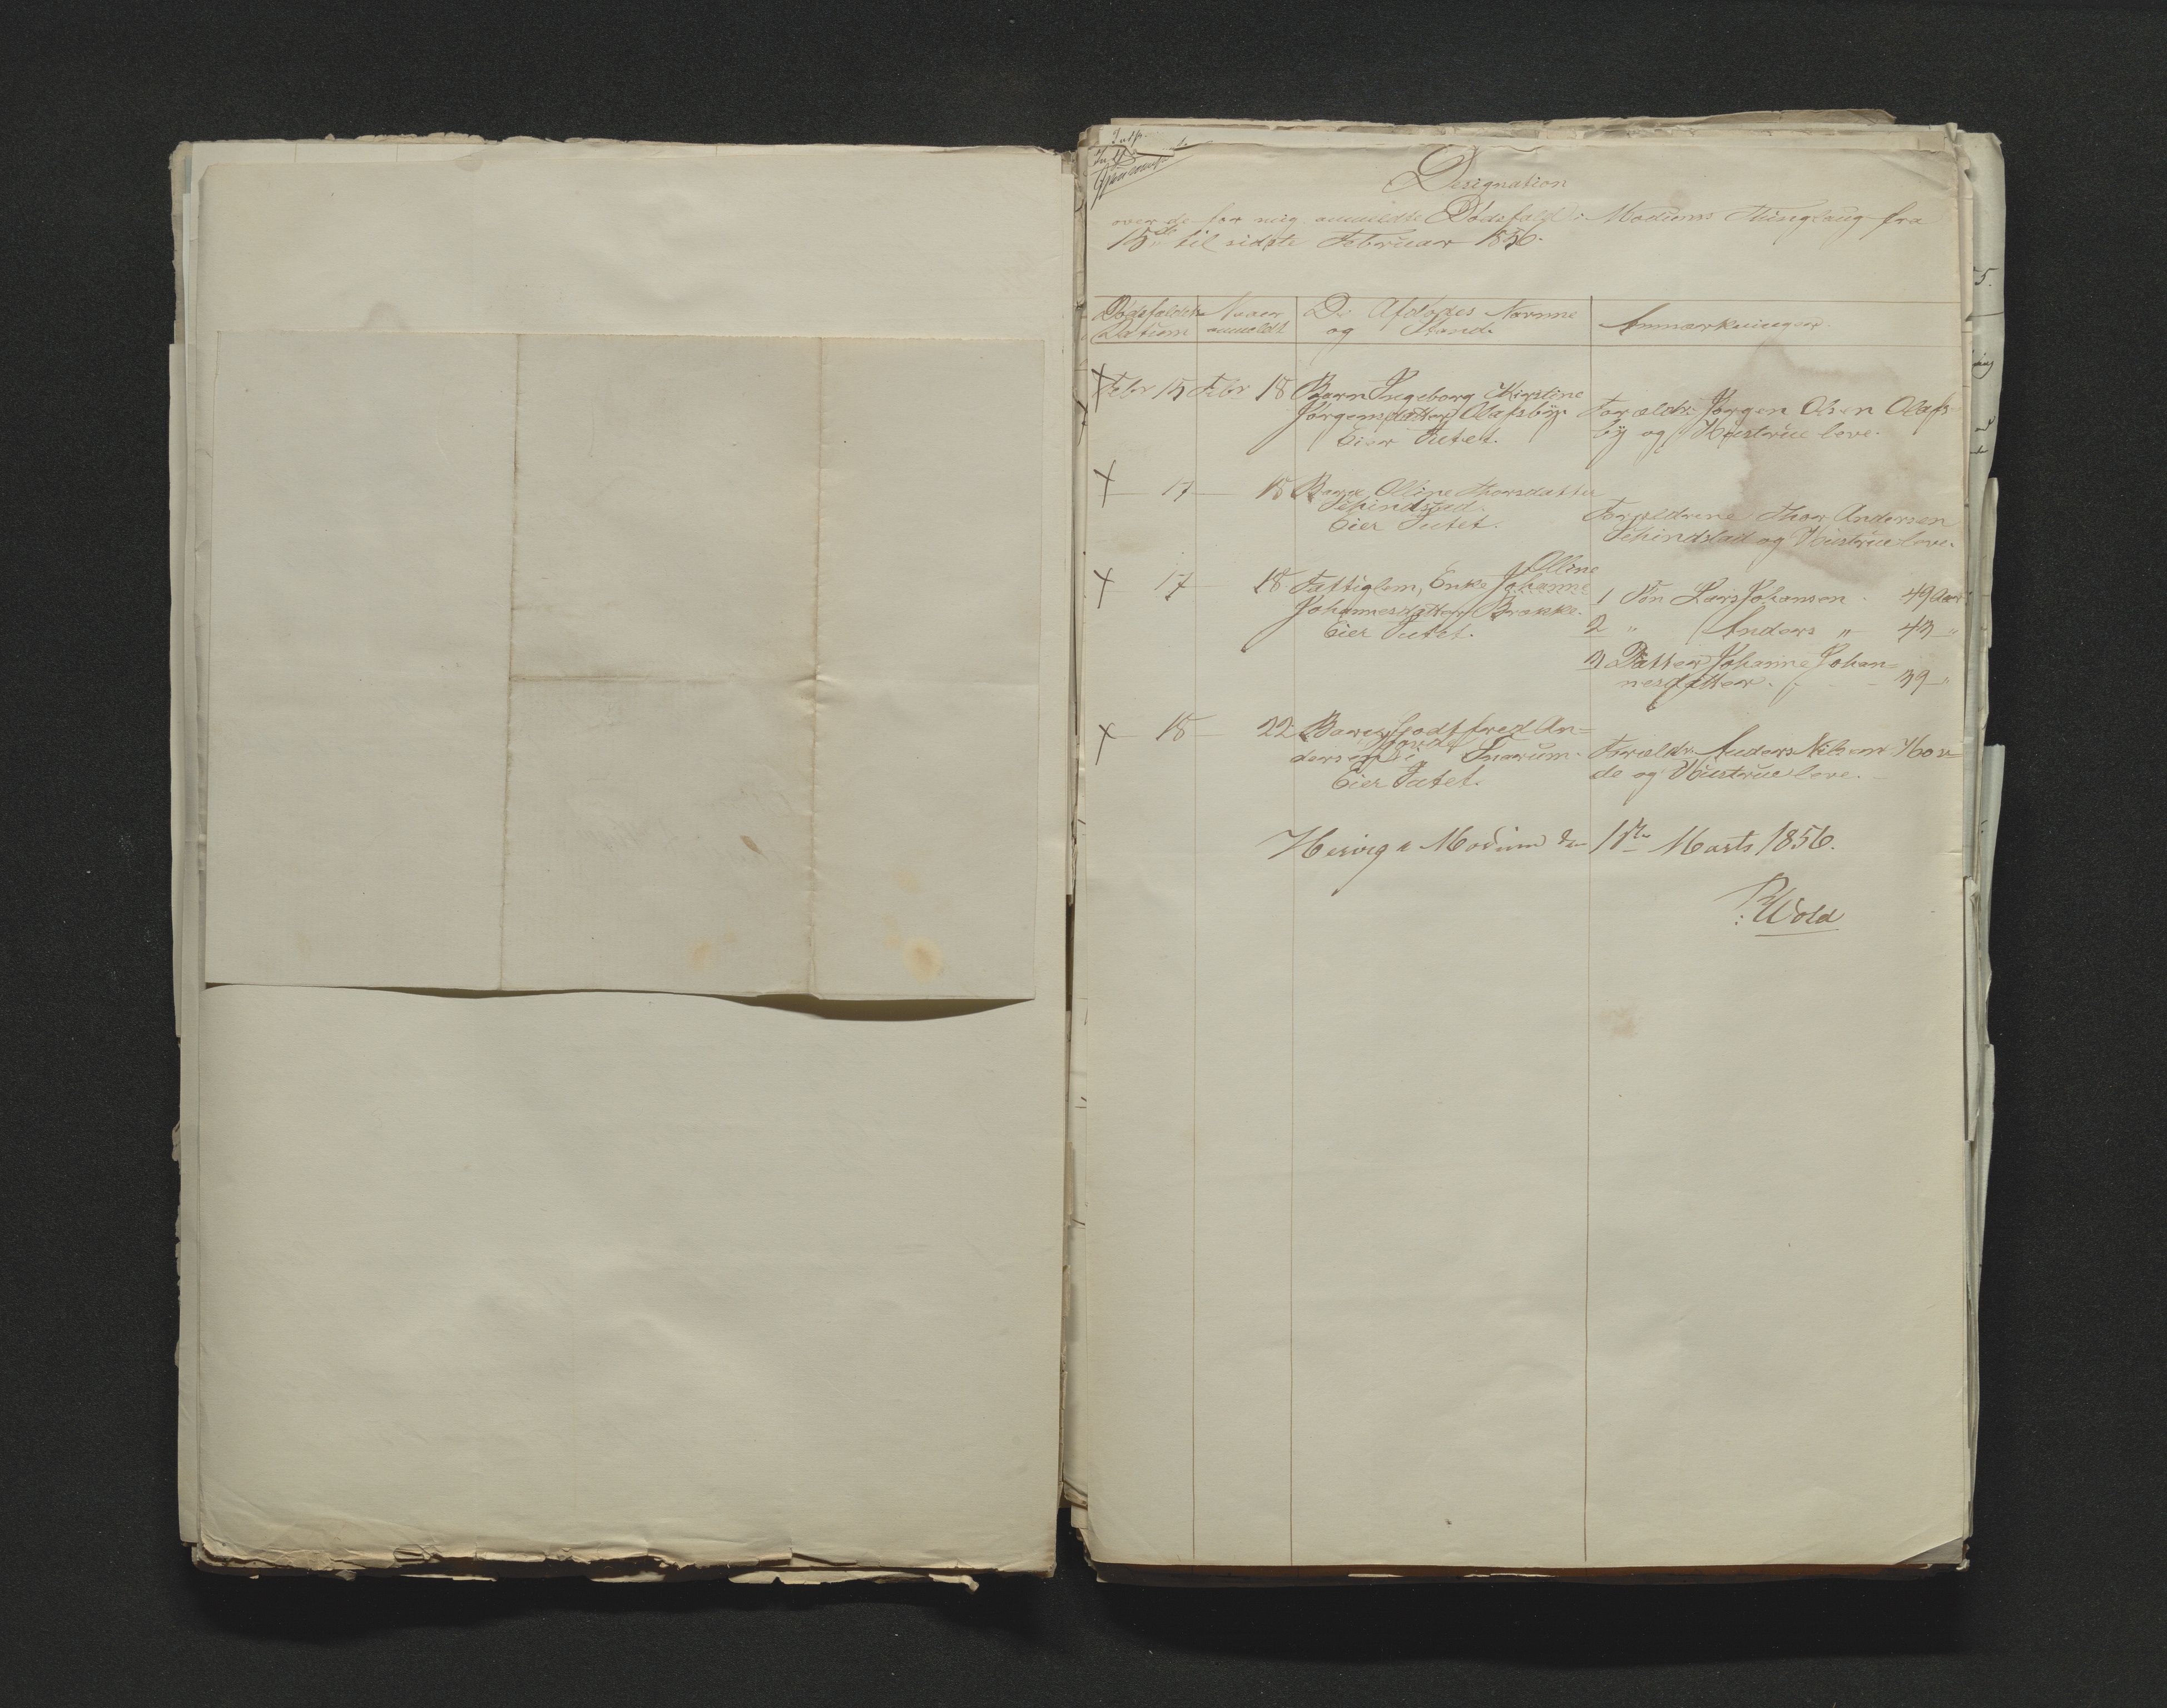 Designation
over de for mig anmeldte Dødsfald i Modums Thinglaug fra
15de til sidste Februar 1856.
Dødsfaldets
Datum
Naar
anmeldt
De Afdødes Navne
og Stand.
Anmærkninger.
Febr 15 Febr 18 Barn Ingeborg Kirstine
Jørgensdatter Olafsby.
Eier Intet.
Foreældr. Jørgen Olsen Olafs
by og Hustrue leve.
17 18 Barn Olline Thorsdatter
Eier Intet.
Forældrene Thor Andersen
og Hustrue leve.
17 18 Fattiglem, Enke Johanne
Olline
Johannesdatter Brække.
Eier Intet.
1 Søn Lars Johansen 49 Aar
2 " Anders " 43 "
3 Datter Johanne Johan=
nesdatter. 39 "
18 22 Barn Godtfred An=
dersen i Snarum.
Eier Intet.
Forældr. Anders Nilsen
de og Hustrue leve.
Hesvig i Modum den 1ste Marts 1856.
Wold